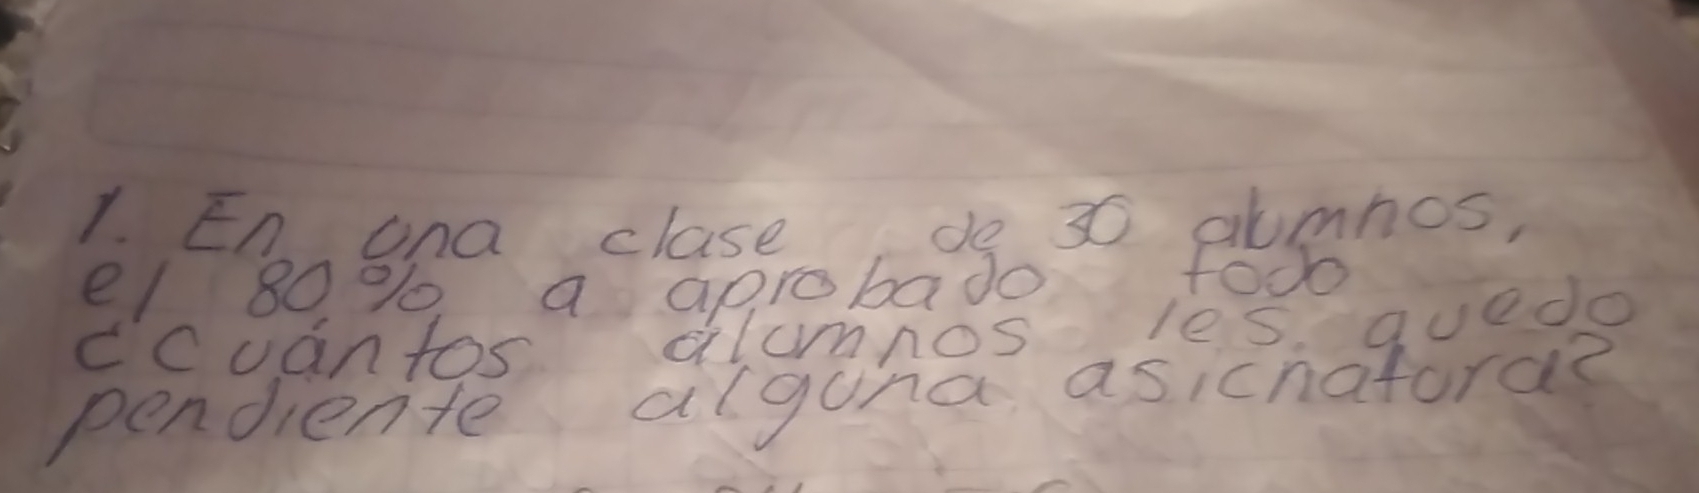 1. En una clase de 30 alumnos,
el 80% a aprobado todo
¿Cuántos alumnos les quedo
pendiente alguna asicnatura?